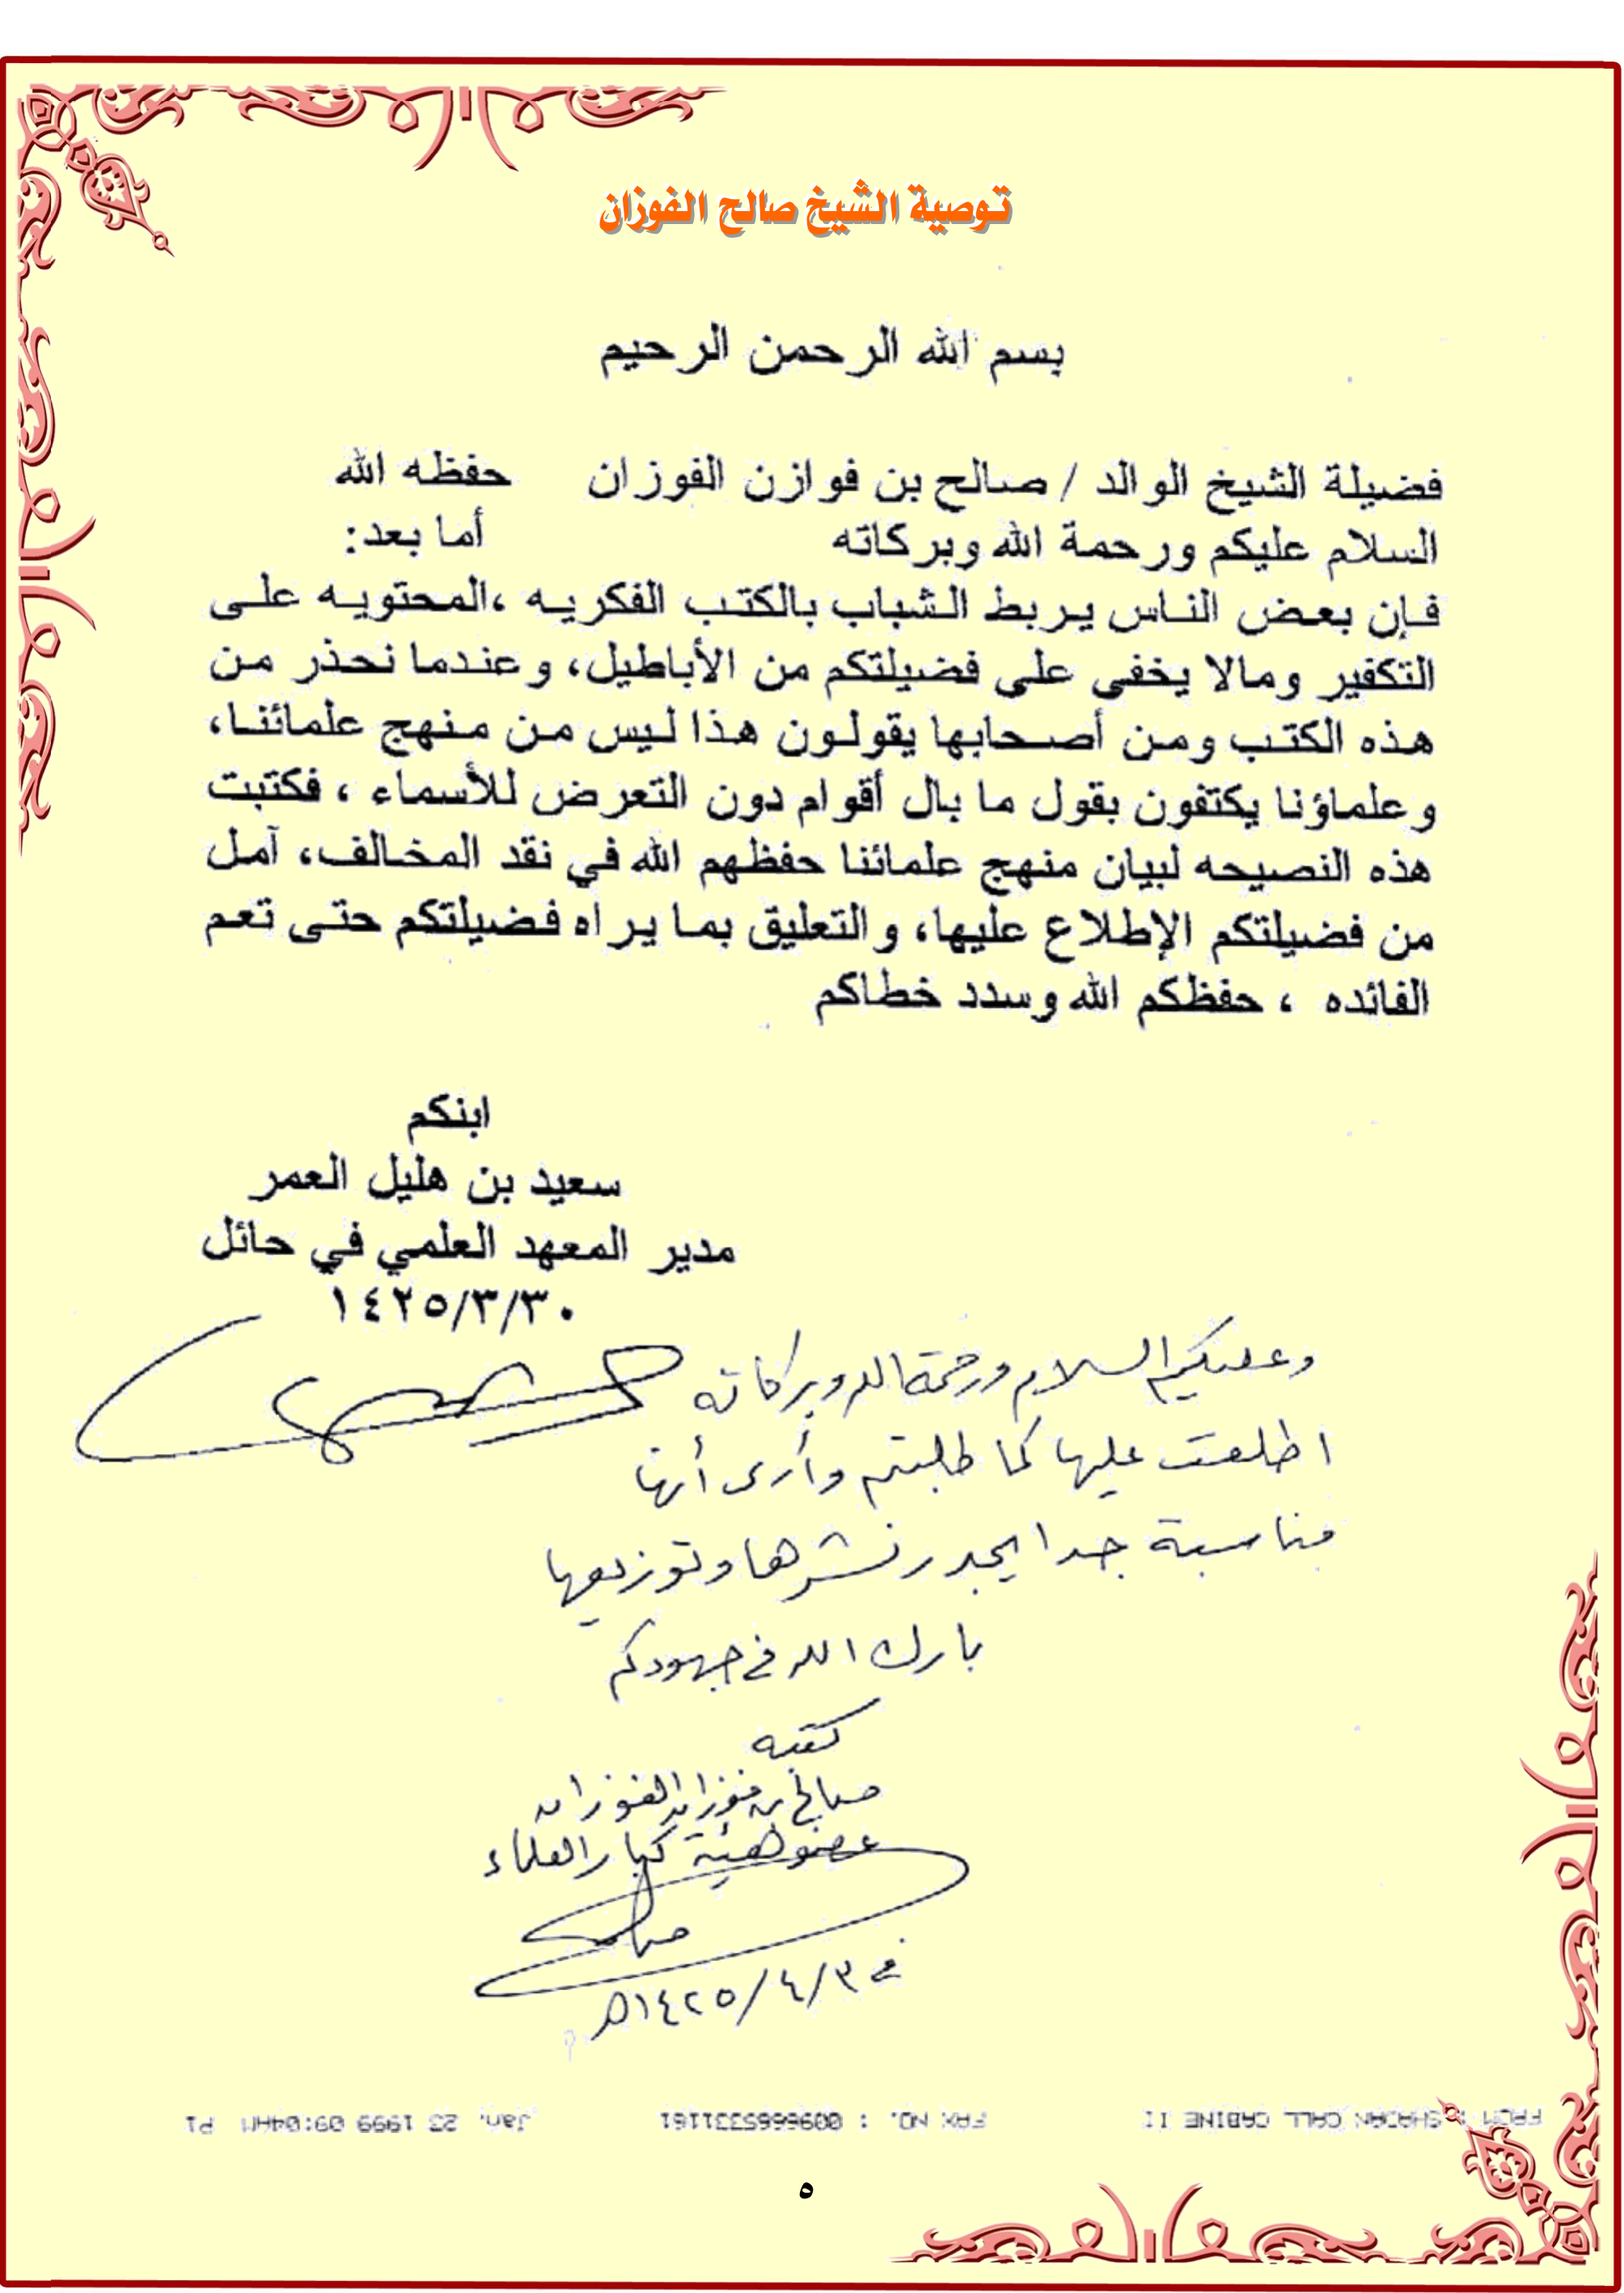 توصية الشيخ صالح الفوزان
بسم الله الرحمن الرحيم
فضيلة الشيخ الوالد / صالح بن فوازن الفوزان حفظه الله
السلام عليكم ورحمة الله وبركاته أما بعد:
فإن بعض الناس يربط الشباب بالكتب الفكريه ،المحتويه على
التكفير ومالا يخفى على فضيلتكم من الأباطيل، وعندما نحذر من
هذه الكتب ومن أصحابها يقولون هذا ليس من منهج علمائنا،
وعلماؤنا يكتفون بقول ما بال أقوام دون التعرض للأسماء ، فكتبت
هذه النصيحه لبيان منهج علمائنا حفظهم الله في نقد المخالف، آمل
من فضيلتكم الإطلاع عليها، والتعليق بما يراه فضيلتكم حتى تعم
الفائده ، حفظكم الله وسدد خطاكم
ابنكم
سعيد بن هليل العمر
مدير المعهد العلمي في حائل
١٤٢٥/٣/٣٠
وعليكم السلام ورحمة الله وبركاته
اطلعت عليها كما طلبتم وأرى أنها
مناسبة جدا يجدر نشرها وتوزيعها
بارك الله في جهودكم
كتبه
صالح بن فوزان الفوزان
عضو هيئة كبار العلماء
صالح
في ١٤٢٥/٤/٣هـ
FROM : SHAJAN CALL CABINE II FAX NO. : 0096665331161 Jan. 23 1999 09:04AM P1
٥